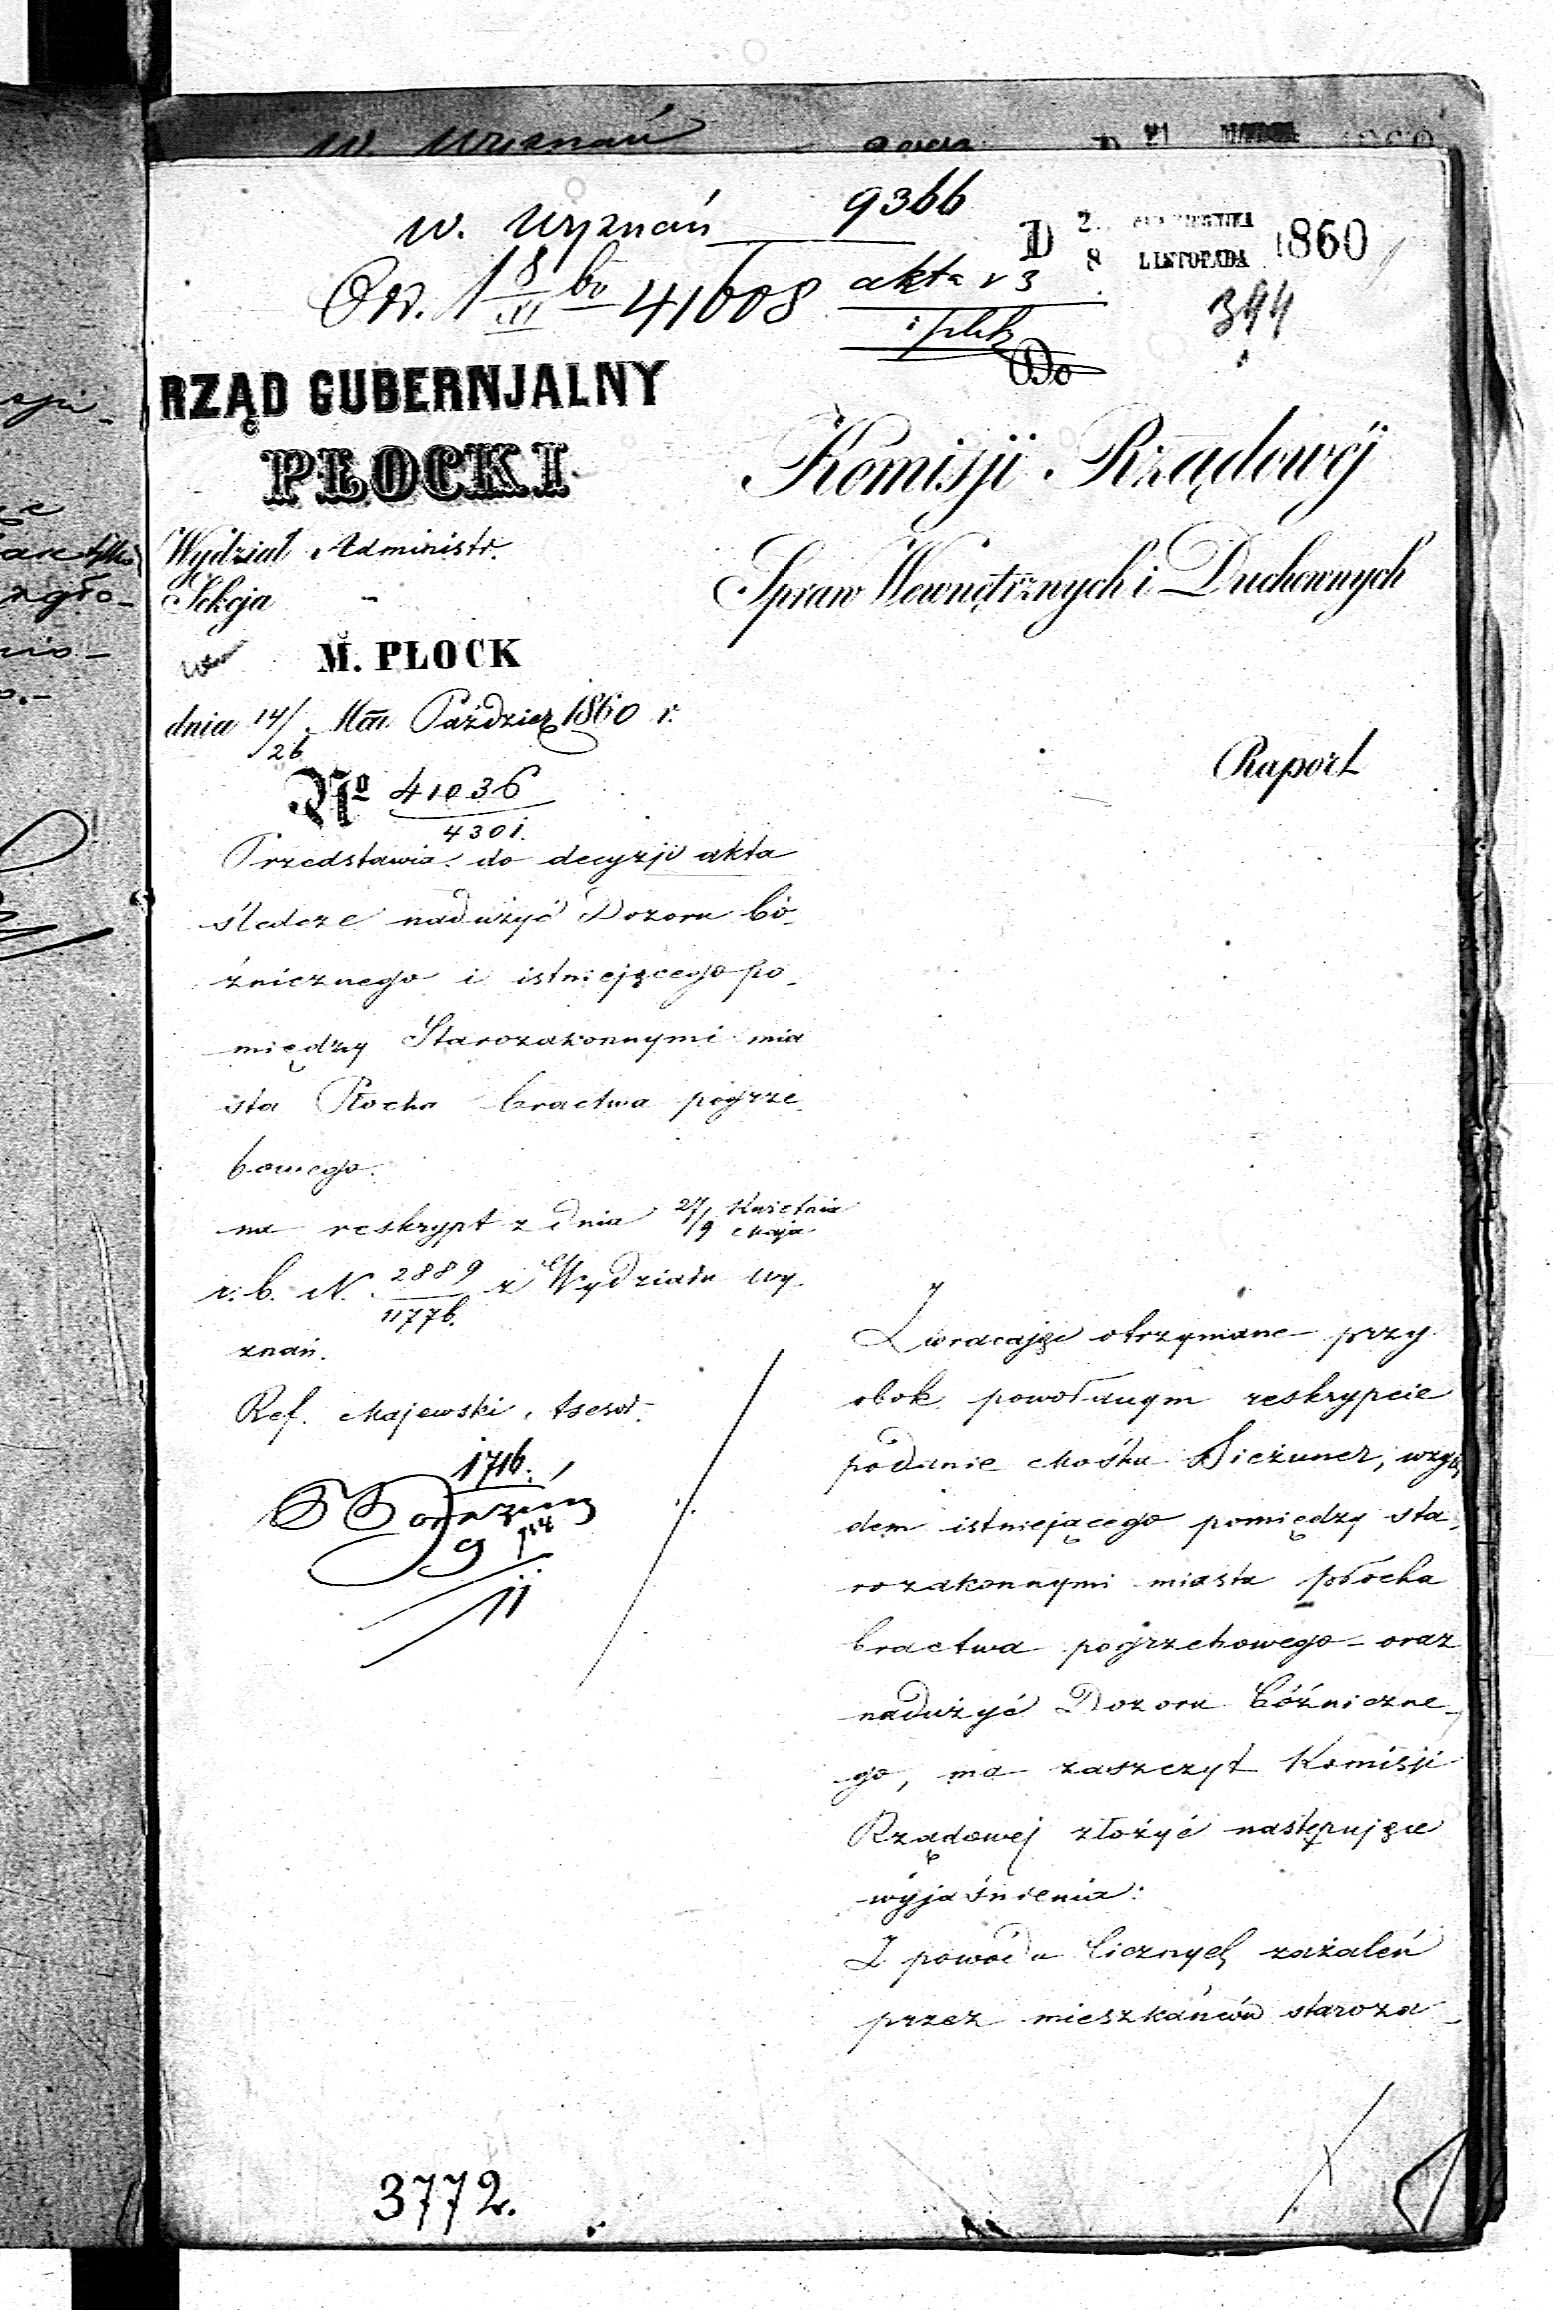 w. wyznań 9366
D 8 LISTOPADA 1860
41608 akta v 3
344
RZĄD GUBERNJALNY
PŁOCKI
Wydział Administr.
Sekcja -
M. PŁOCK
dnia 14/26 Paździer 1860 r.
№ 41036
4301.
Przedstawia do decyzji akta
śledcze nadużyć Dozoru bó-
źnicznego i istniejącego po-
między Starozakonnymi mia
sta Płocka bractwa pogrze
bowego.
na reskrypt z dnia 27/9 Kwietnia Maja
r. b. N. 2889 z Wydziału wy-
11776.
znań.
Ref. Majewski, Asesor.
1716.
9
11
Do
Komisji Rządowéj
Spraw Wewnętrznych i Duchownych
Raport
Zwracając otrzymane przy
obok powołanym reskrypcie
podanie Mośka Bieżuner, wzglę
dem istniejącego pomiędzy sta-
rozakonnymi miasta płocka
bractwa pogrzebowego - oraz
nadużyć Dozoru bóźniczne-
go, ma zaszczyt Komisji
Rządowej złożyć następujące
wyjaśnienia:
Z powodu licznych zażaleń
przez mieszkańców staroza-
3772.